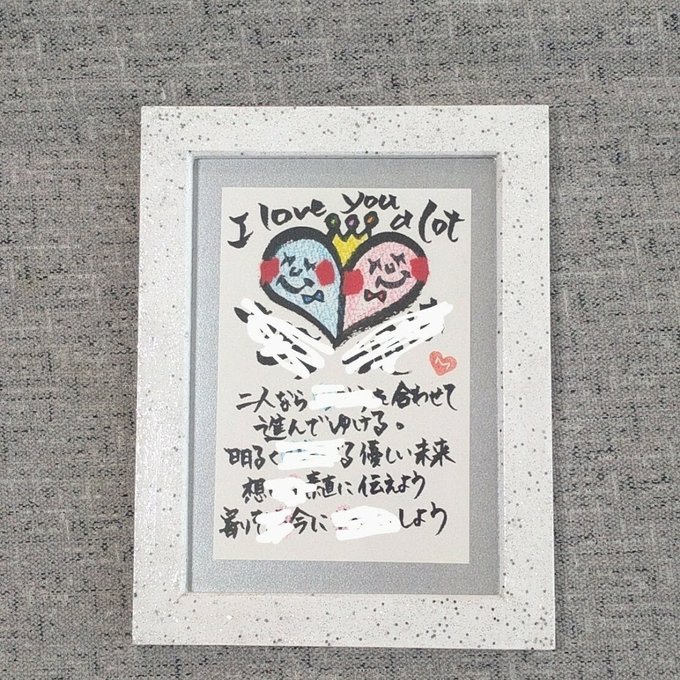 I love you a lot
二人なら を合わせて
進んでゆける。
明るく る優しい未来
想 素直に伝えよう
今に しよう